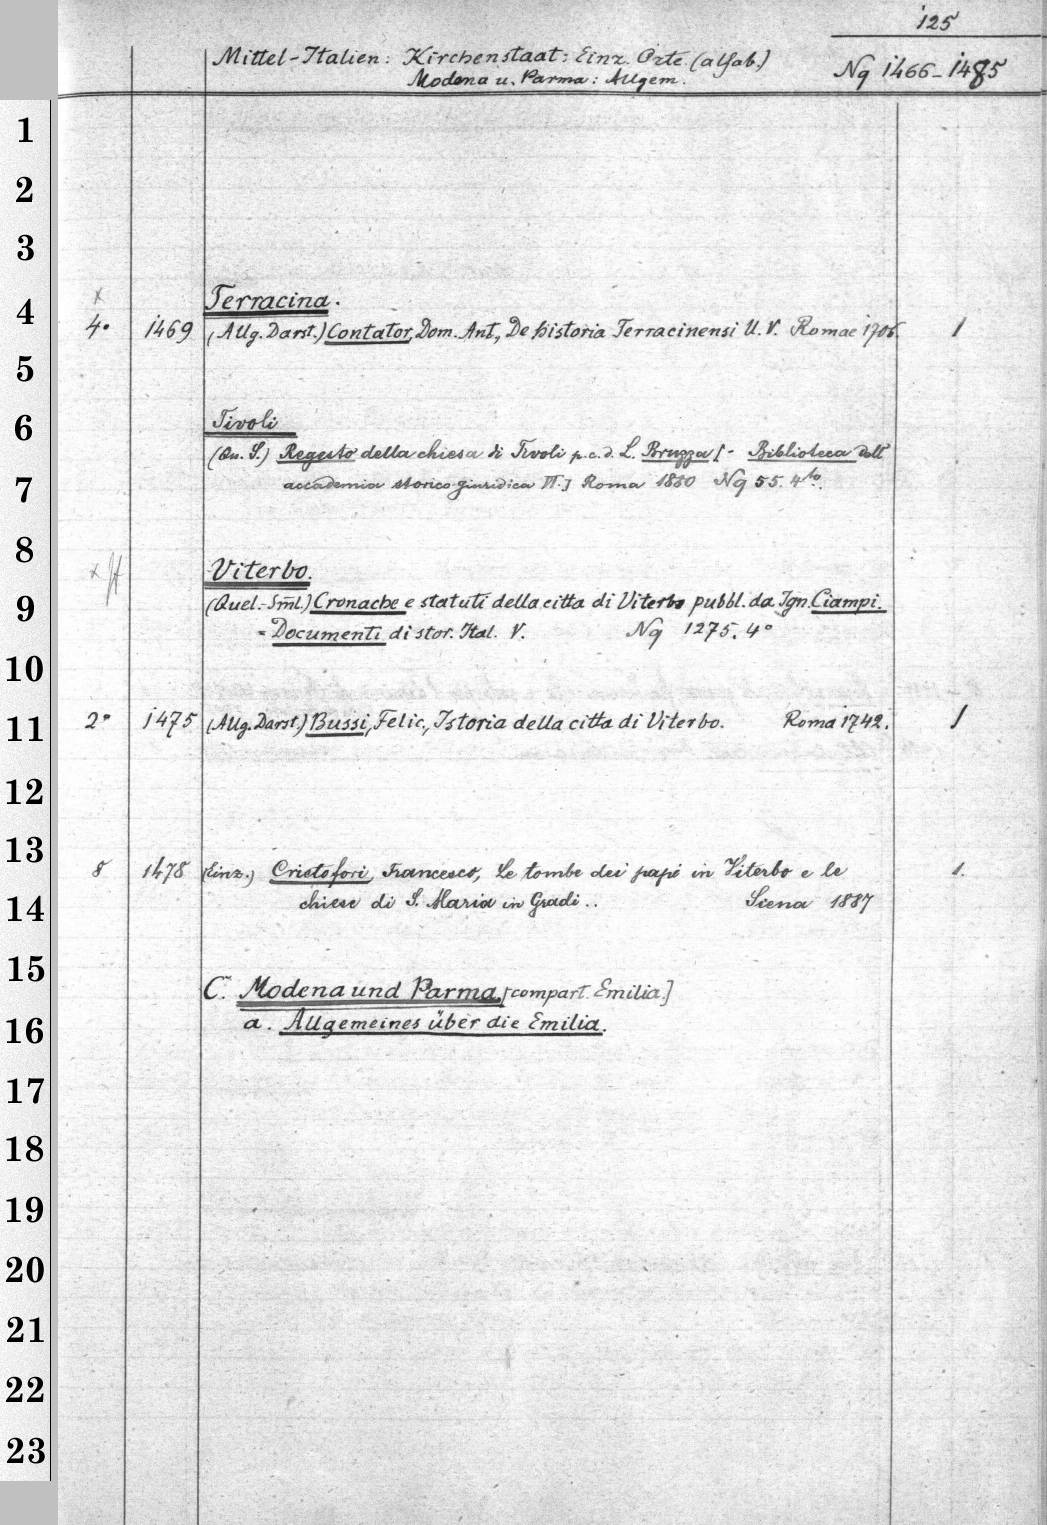 125
Mittel-Italien: Kirchenstaat: Einz. Orte. (alfab.)
Modena u. Parma: Allgem.
Nq 1466-1485
1
2
3
Terracina.
4
x
4° 1469 (Allg. Darst.) Contator, Dom. Ant., De historia Terracinensi U. V. Romae 1706. 1
5
6
Tivoli
(Qu. S.) Regesto della chiesa di Tivoli p.c.d. L. Bruzza [- Biblioteca dell'
7
accademia storico giuridica VI.] Roma 1880 Nq 55. 4to.
8
x ft Viterbo.
9
(Quel.-Sml.) Cronache e statuti della citta di Viterbo pubbl. da Ign. Ciampi.
= Documenti di stor. Ital. V. Nq 1275. 4°
10
11
2° 1475 (Allg. Darst.) Bussi, Felic., Istoria della citta di Viterbo. Roma 1742. 1
12
13
8 1478 (Einz.) Cristofori, Francesco, Le tombe dei papi in Viterbo e le 1.
14
chiese di S. Maria in Gradi.. Siena 1887
15
C. Modena und Parma. [compart. Emilia]
16
a. Allgemeines über die Emilia.
17
18
19
20
21
22
23